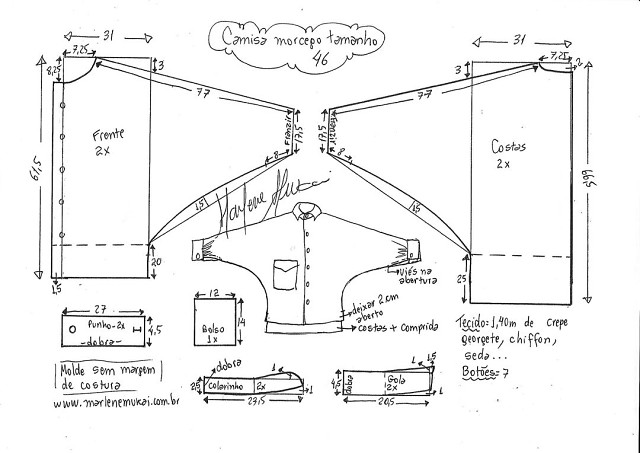 Camisa morcego tamanho
46
31
7,25
8,25
3
77
Frente
2x
61,5
Franzir
17,5
8
1,5
20
1,5
31
7,25
2
3
77
Costas
2x
Franzir
17,5
8
1,5
25
Marlene Mukai
27
Punho-2x
-dobra-
4,5
12
Bolso
1x
14
viés na
abertura
deixar 2cm
aberto
costas + comprida
Molde sem margem
de costura
www.marlenemukai.com.br
dobra
Colarinho
2x
1
1
23,5
dobra
Gola
2x
4,5
1
1,5
1
20,5
Tecido: 1,40m de crepe
georgete, chiffon,
seda...
Botões= 7